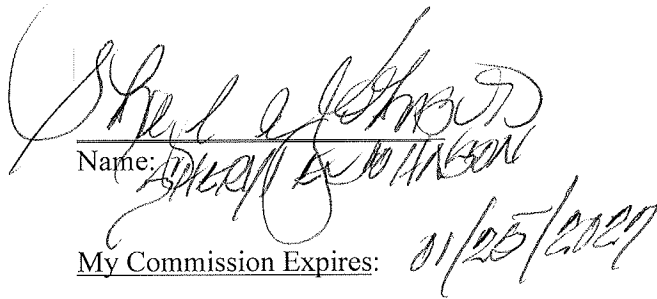 Sheryl A Johnson
Name: SHERYL A JOHNSON
My Commission Expires: 01/25/2027